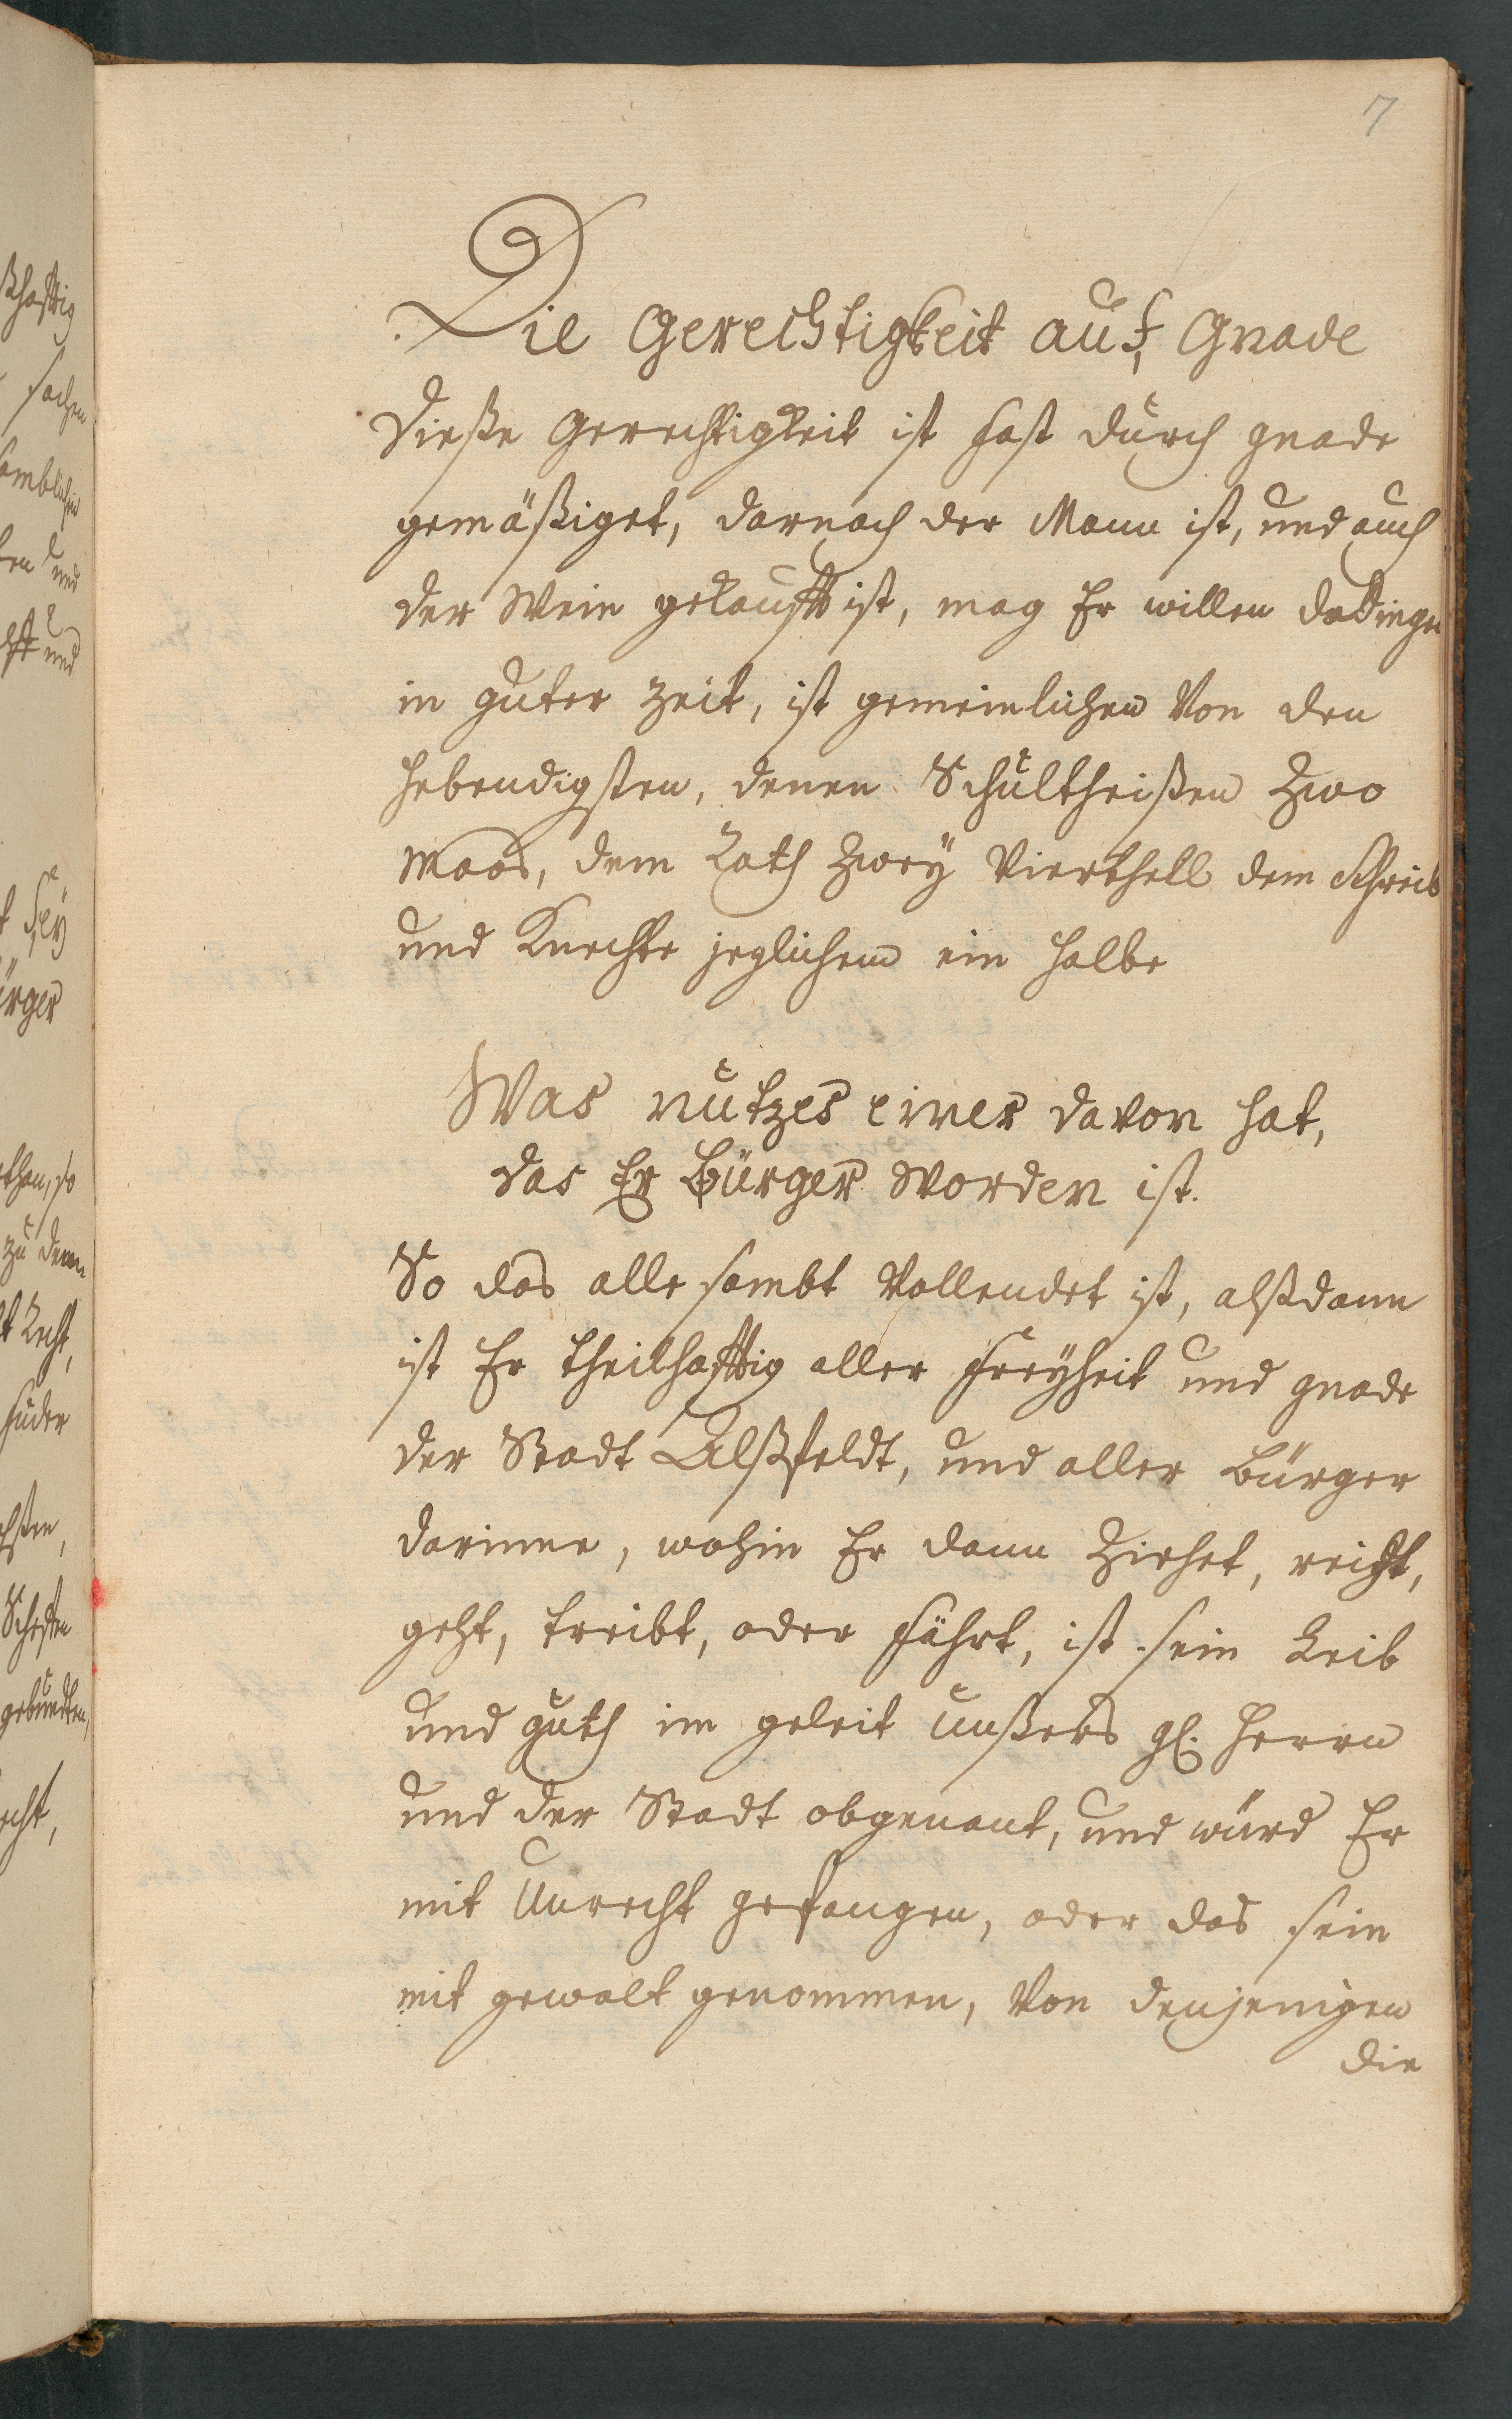 7
Die Gerechtigkeit auf Gnade
Dieße Gerechtigkeit ist fast durch gnade
gemäßiget, darnach der Mann ist, und auch
der Wein gekaufft ist, mag Er willen dadingen
in guter Zeit, ist gemeinlichen Von den
hebendigsten, denen Schultheißen Zwo
Maas, dem Rath Zwey Vierthell dem Schreib
und Knechte jeglichem ein halbe
Was nutzes einer davon hat,
das Er Bürger worden ist.
So das alle sambt Vollendet ist, alßdann
ist Er theilhafftig aller Freyheit und gnade
der Stadt Alßfeldt, und aller Bürger
darinne, wohin Er dann Ziehet, reicht,
geht, treibt, oder fährt, ist sein Leib
und guth im geleit unßers gl. Herrn
und der Stadt obgenant, und würd Er
mit Unrecht gefangen, oder das sein
mit gewalt genommen, Von denjenigen
die